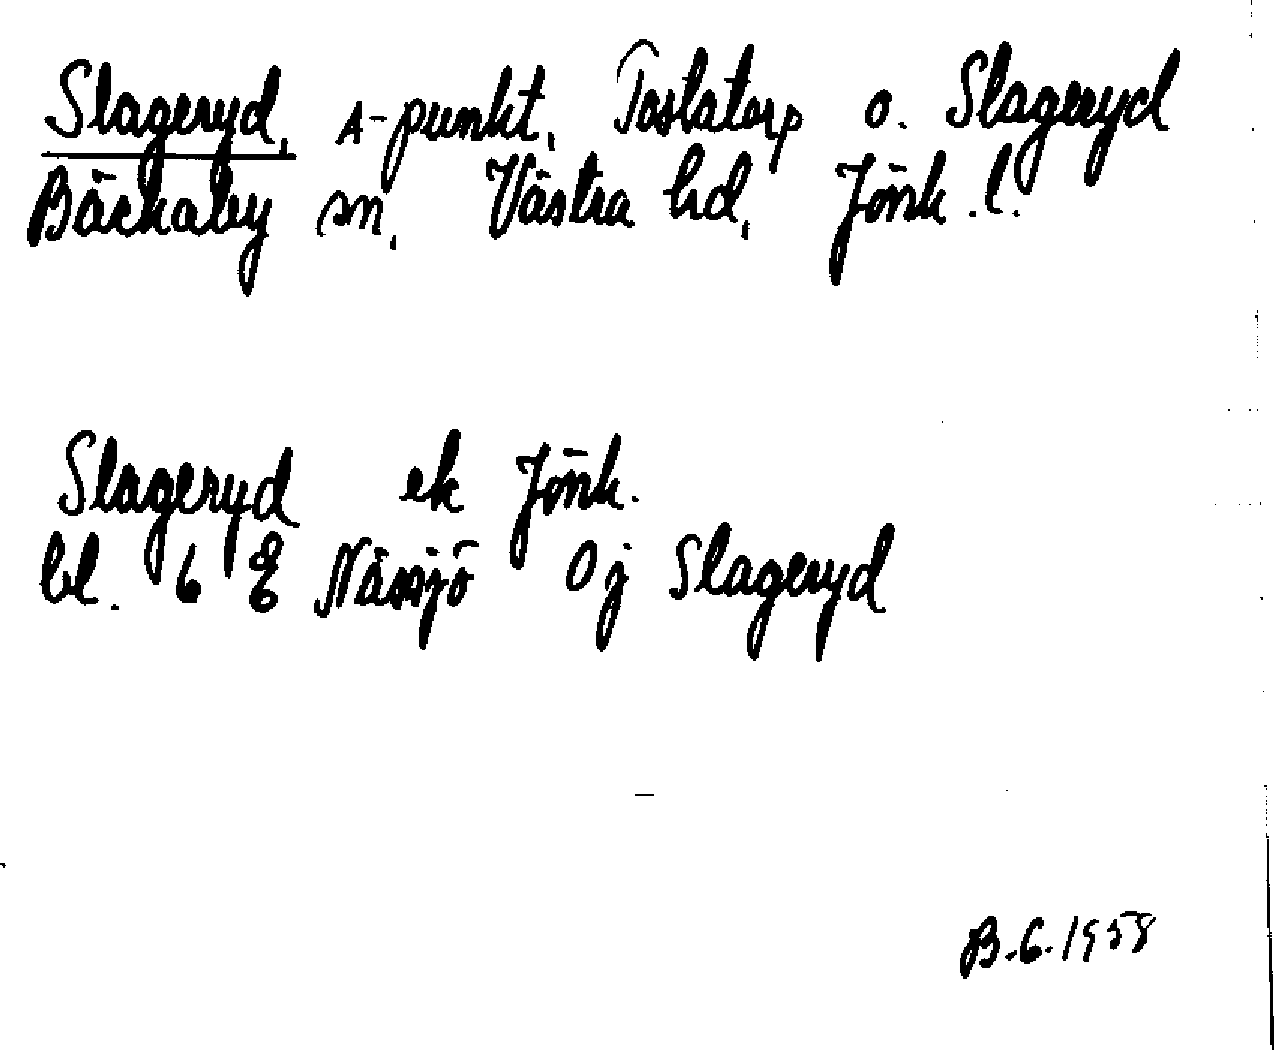 Slageryd, A-punkt, Toslatorp o. Slageryd
Bäckaby sn, Västra hd, Jönk. l.
Slageryd ek Jönk.
bl. 6 E Nässjö Oj Slageryd
B.G. 1958